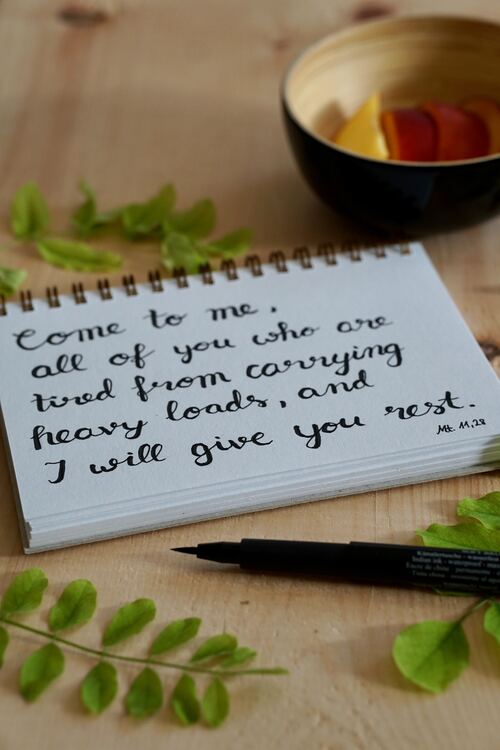 Come to me,
all of you who are
tired from carrying
heavy loads, and
I will give you rest.
Mt. 11,28
Künstlertusche
Indian ink - waterproof
Encre de chine
Tinta china